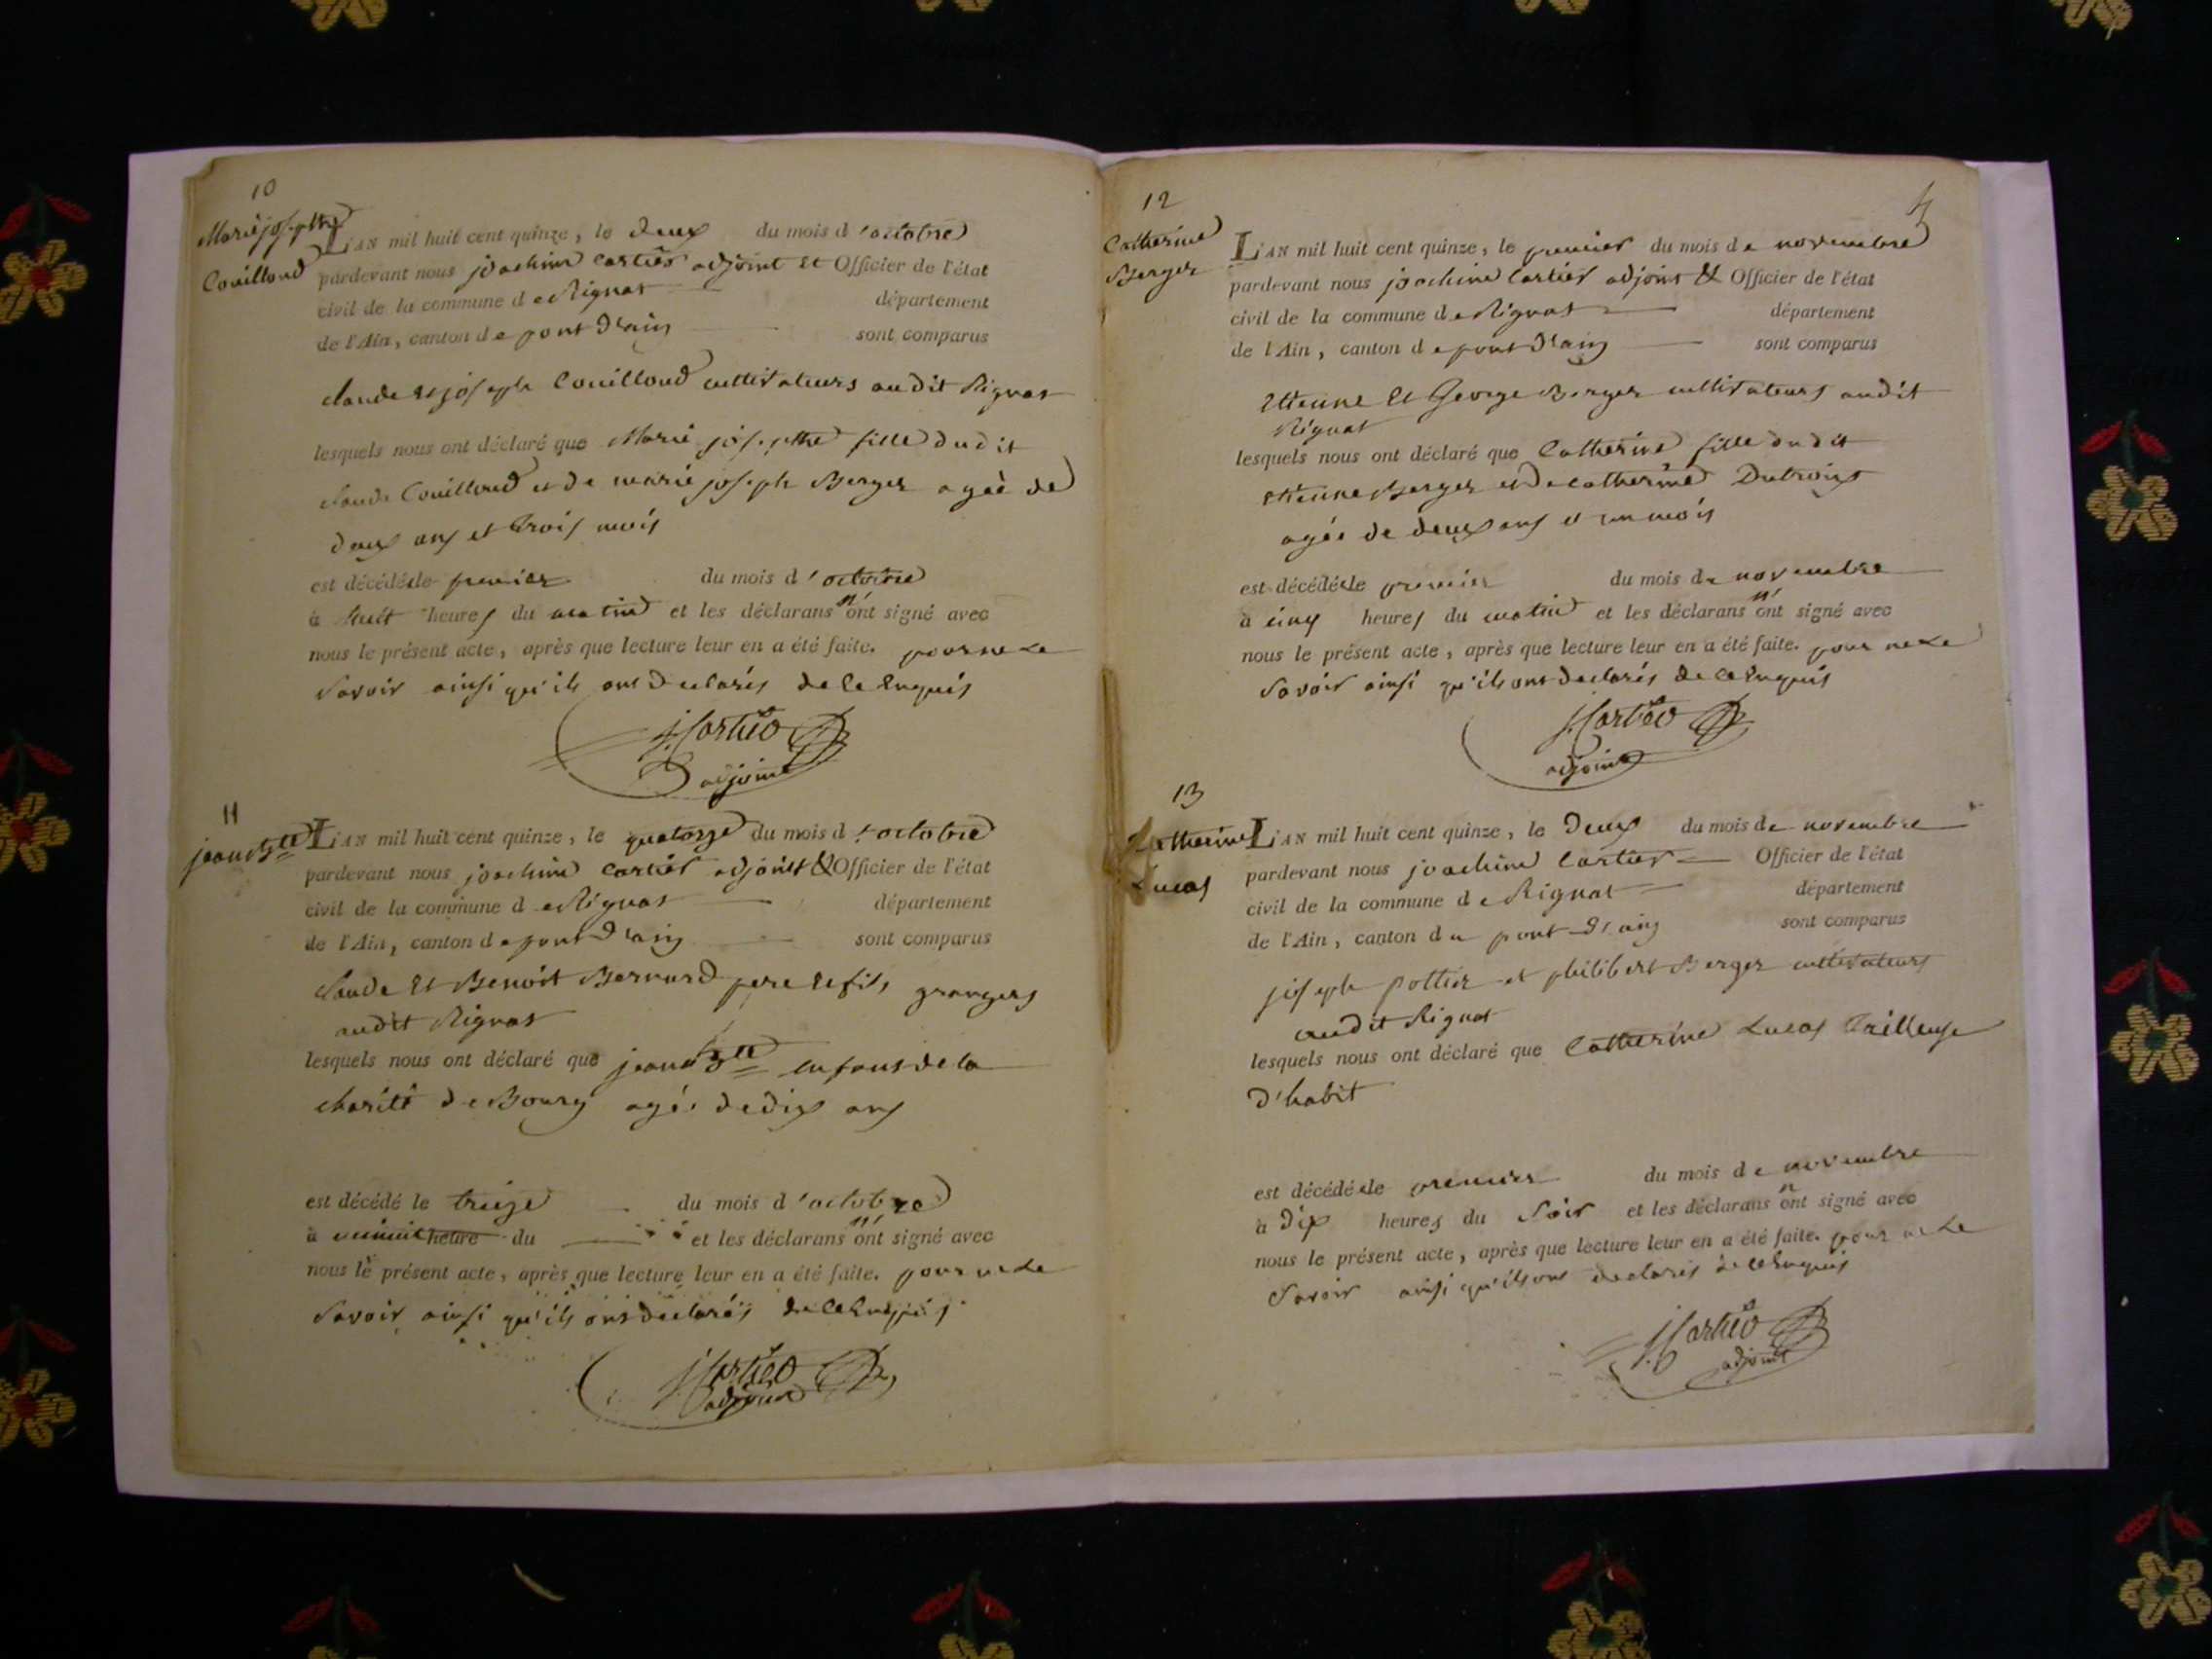 10
Marie josepthe
Couilloud
L'AN mil huit cent quinze, le deux du mois d'octobre
pardevant nous joachim Cartier adjoint et Officier de l'état
civil de la commune de Rignat département
de l'Ain, canton de pont d'ain sont comparus
claude et joseph Couilloud cultivateurs audit Rignat
lesquels nous ont déclaré que Marie josepthe fille dudit
claude Couilloud et de marie joseph Berger agée de
deux ans et trois mois
est décédée le premier du mois d'octobre
à huit heures du matin et les déclarans n'ont signé avec
nous le présent acte, après que lecture leur en a été faite. pour ne le
savoir ainsi qu'ils ont declarés de ce Enquis
J. Cartier
adjoint
11
jean
L'AN mil huit cent quinze, le quatorze du mois d'octobre
pardevant nous joachim Cartier adjoint & Officier de l'état
civil de la commune de Rignat département
de l'Ain, canton de pont d'ain sont comparus
Claude et Benoit Bernard pere et fils grangers
audit Rignat
lesquels nous ont déclaré que jean enfant de la
charité de Bourg agé de dix ans
est décédé le treize du mois d'octobre
à minuit heure du et les déclarans n'ont signé avec
nous le présent acte, après que lecture leur en a été faite. pour ne le
savoir ainsi qu'ils ont declarés de ce Enquis
J. Cartier
adjoint
12
4
Catherine
Berger
L'AN mil huit cent quinze, le premier du mois de novembre
pardevant nous joachim Cartier adjoint & Officier de l'état
civil de la commune de Rignat département
de l'Ain, canton de pont d'ain sont comparus
Etienne et George Berger cultivateurs audit
Rignat
lesquels nous ont déclaré que Catherine fille dudit
etienne Berger et de catherine
agée de deux ans et un mois
est décédée le premier du mois de novembre
à cinq heures du matin et les déclarans n'ont signé avec
nous le présent acte, après que lecture leur en a été faite. pour ne le
savoir ainsi qu'ils ont declarés de ce Enquis
J. Cartier
adjoint
13
Catherine
Lucas
L'AN mil huit cent quinze, le deux du mois de novembre
pardevant nous joachim Cartier Officier de l'état
civil de la commune de Rignat département
de l'Ain, canton de pont d'ain sont comparus
joseph pottier et philibert Berger cultivateurs
audit Rignat
lesquels nous ont déclaré que Catherine Lucas tailleuse
d'habit
est décédée le premier du mois de novembre
à dix heures du soir et les déclarans n'ont signé avec
nous le présent acte, après que lecture leur en a été faite. pour ne le
savoir ainsi qu'ils ont declarés de ce Enquis
J. Cartier
adjoint